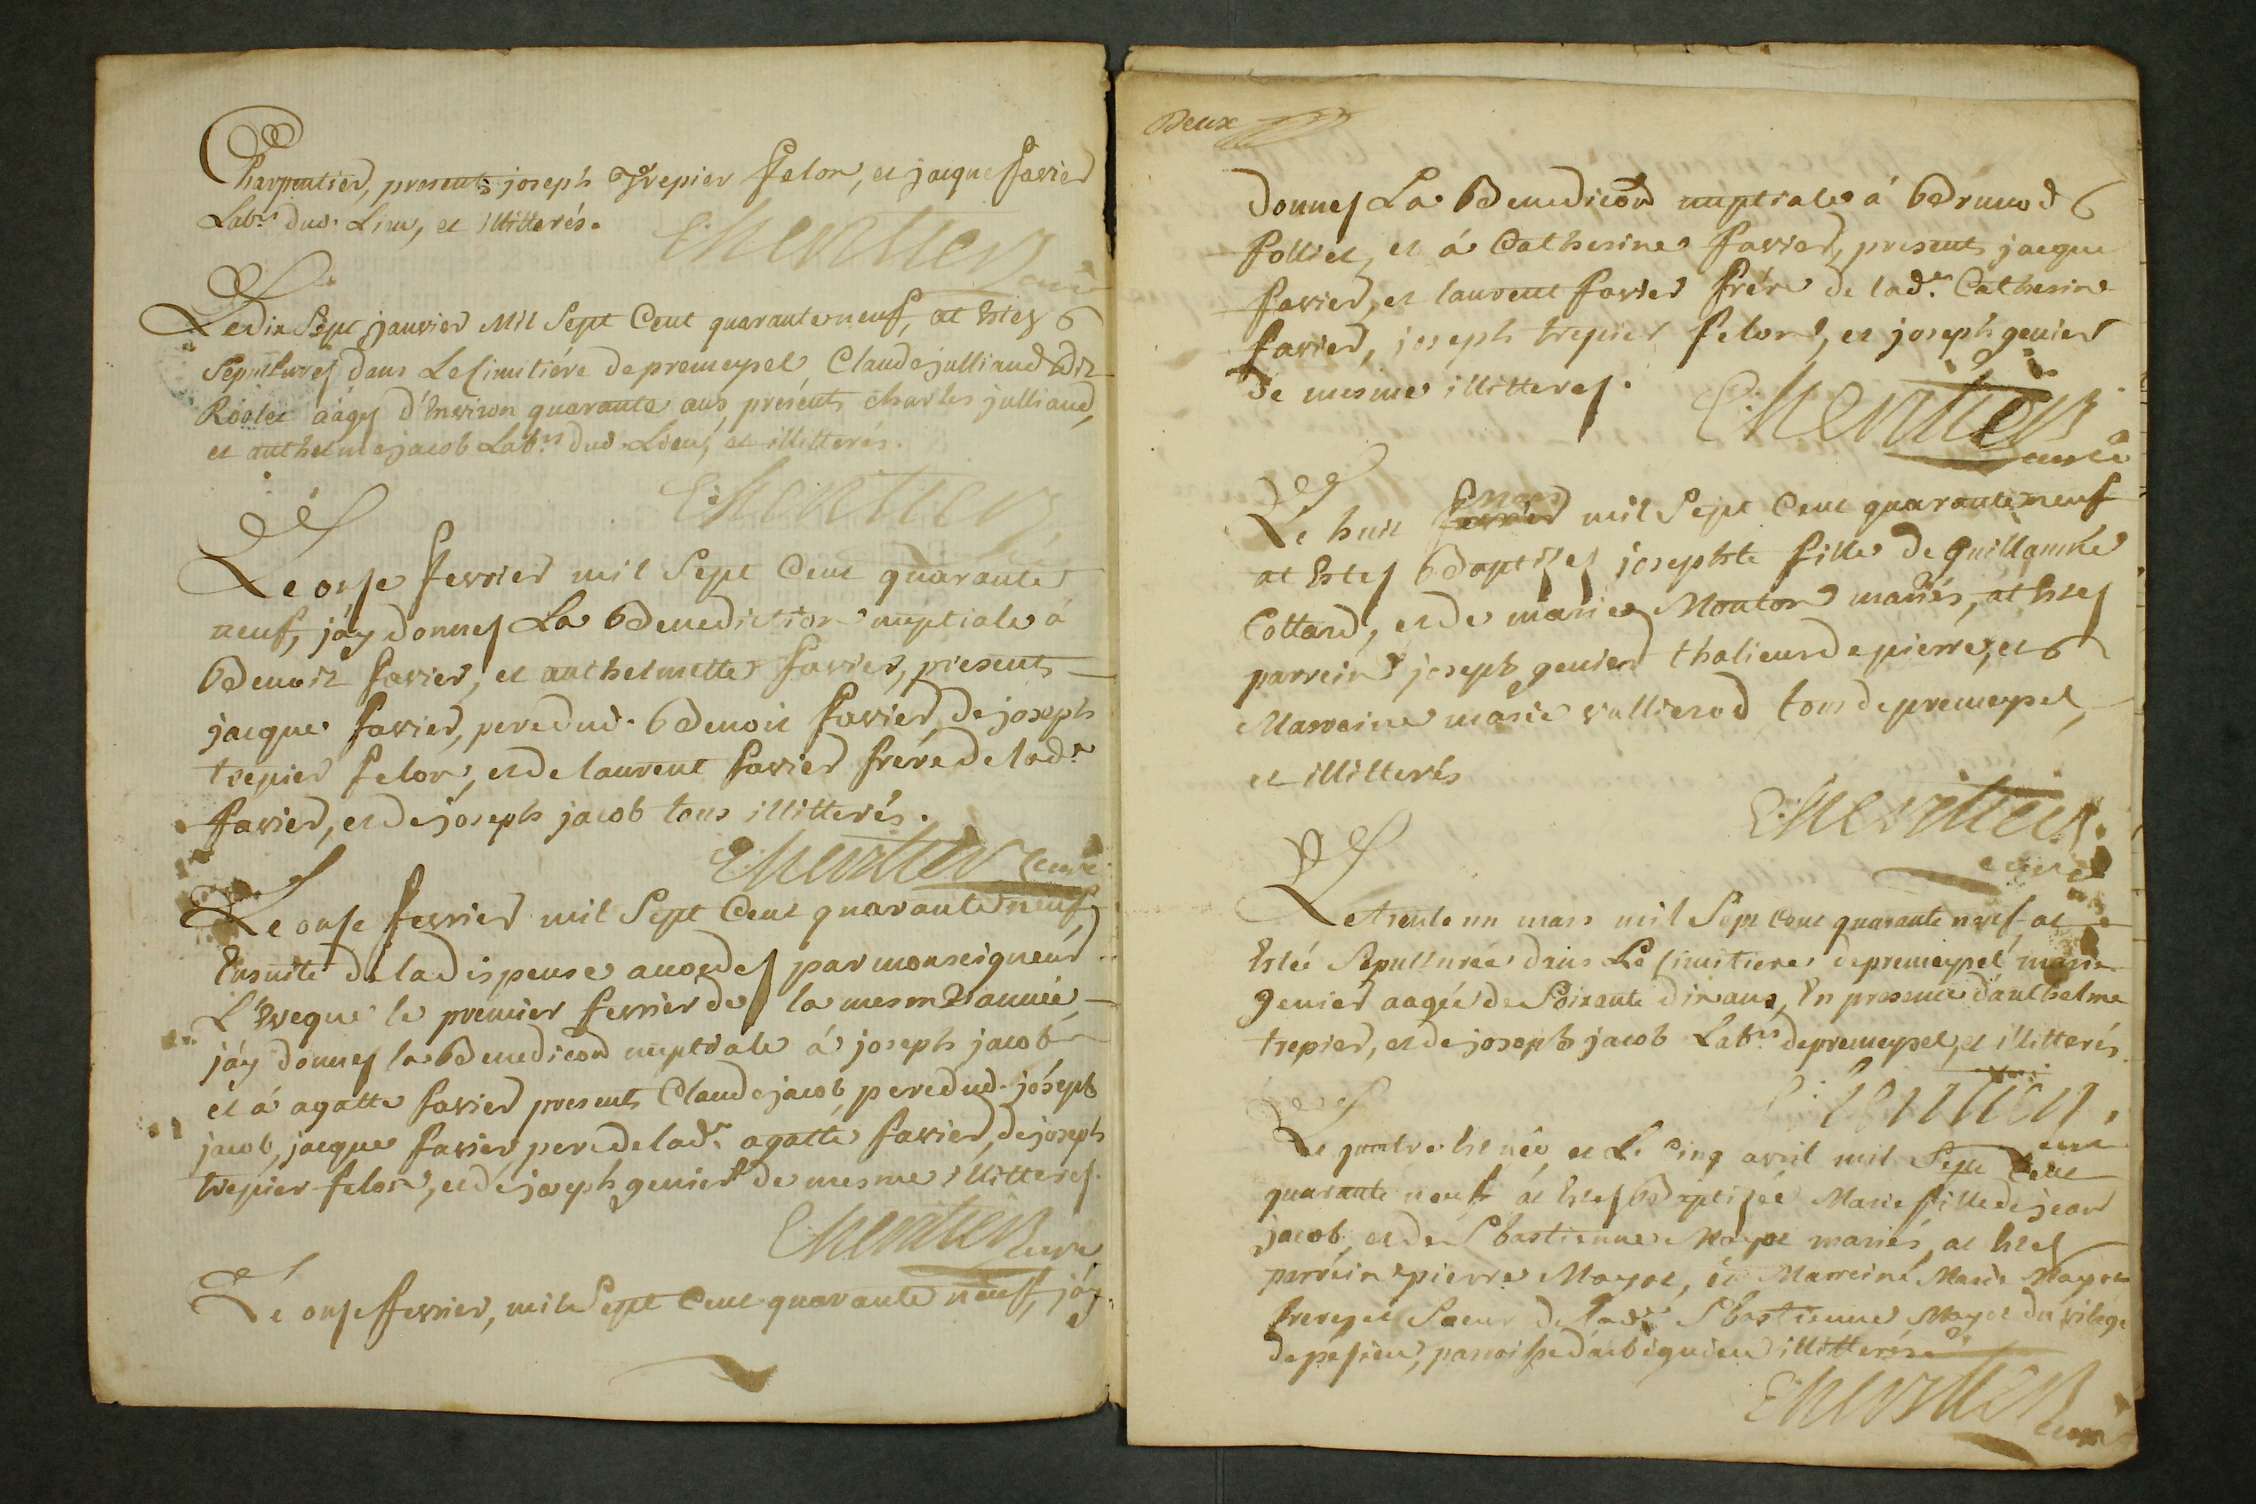 Charpentier, presents joseph Trepier felon, et jacque favier
Labrs dud. Lieu, et illitterés.
Chevrttier
curé
Le dix sept janvier Mil Sept Cent quarante neuf, at Estey
Sepulturey dans Le simitiére de premeysel Claude julliand dit
Rôolet aâgy d'Environ quarante ans, présents Charles julliand,
et anthelme jacob Labrs dud. Lieu, et illitterés.
Le onse fevrier mil Sept Cent quarante
neuf, jáy donney La Benediction nuptiale á
Benoit favier, et anthelmette favier, presents
jacque favier, pere dud. Benoit favier, de joseph
trepier felon, et de laurent favier frére de lade
favier, et de joseph jacob tous illitterés.
curé
Le onse fevrier mil Sept Cent quarante neuf,
Ensuite de la dispense accordey par monseigneur
L'Eveque le premier fevrier de la mesme année,
jáy donney la Benedicon nuptiale á joseph jacob
et á agatte favier presents Claude jacob pere dud. joseph
jacob, jacque favier pere de lade agatte favier, de joseph
trepier felon, et de joseph genier de mesme illitterey.
curé
Le onse fevrier, mil Sept Cent quarante neuf, jáy
Deux
donney La Benedicon nuptiale á
folliet, et á Catherine favier, present jacque
favier, et laurent favier frére de lade Catherine
favier, joseph trepier felon, et joseph genier
de mesme illitterey.
curé
Le huit mars mil Sept Cent quarante neuf
at Estey Baptisey josephte fille de guillaume
Cottard, et de marie Monton mariés, at Estey
parrein joseph genier thalieur de pierre, et
Marreine marie vullierod tous de premeysel,
et illitterés
curé
Le trente un mars mil Sept Cent quarante neuf at
Estée Sepulturée dans Le simitiere de premeysel marie
genier aagée de Soixante dix ans, En presence d'anthelme
trepier, et de joseph jacob Labrs de premeysel, et illitterés.
curé
Le quatre Est née, et Le Cinq avril mil Sept Cent
quarante neuf at Estey Baptisée Marie fille de jean
jacob, et de Sbastienne Mayot mariés, at Estey
parrein pierre Mayot, et Marreine Marie Mayot
frere, et Soeur de lade Sbastienne Mayot du vilage
de pesieu, paroisse d'arbignieu illitterés
curé